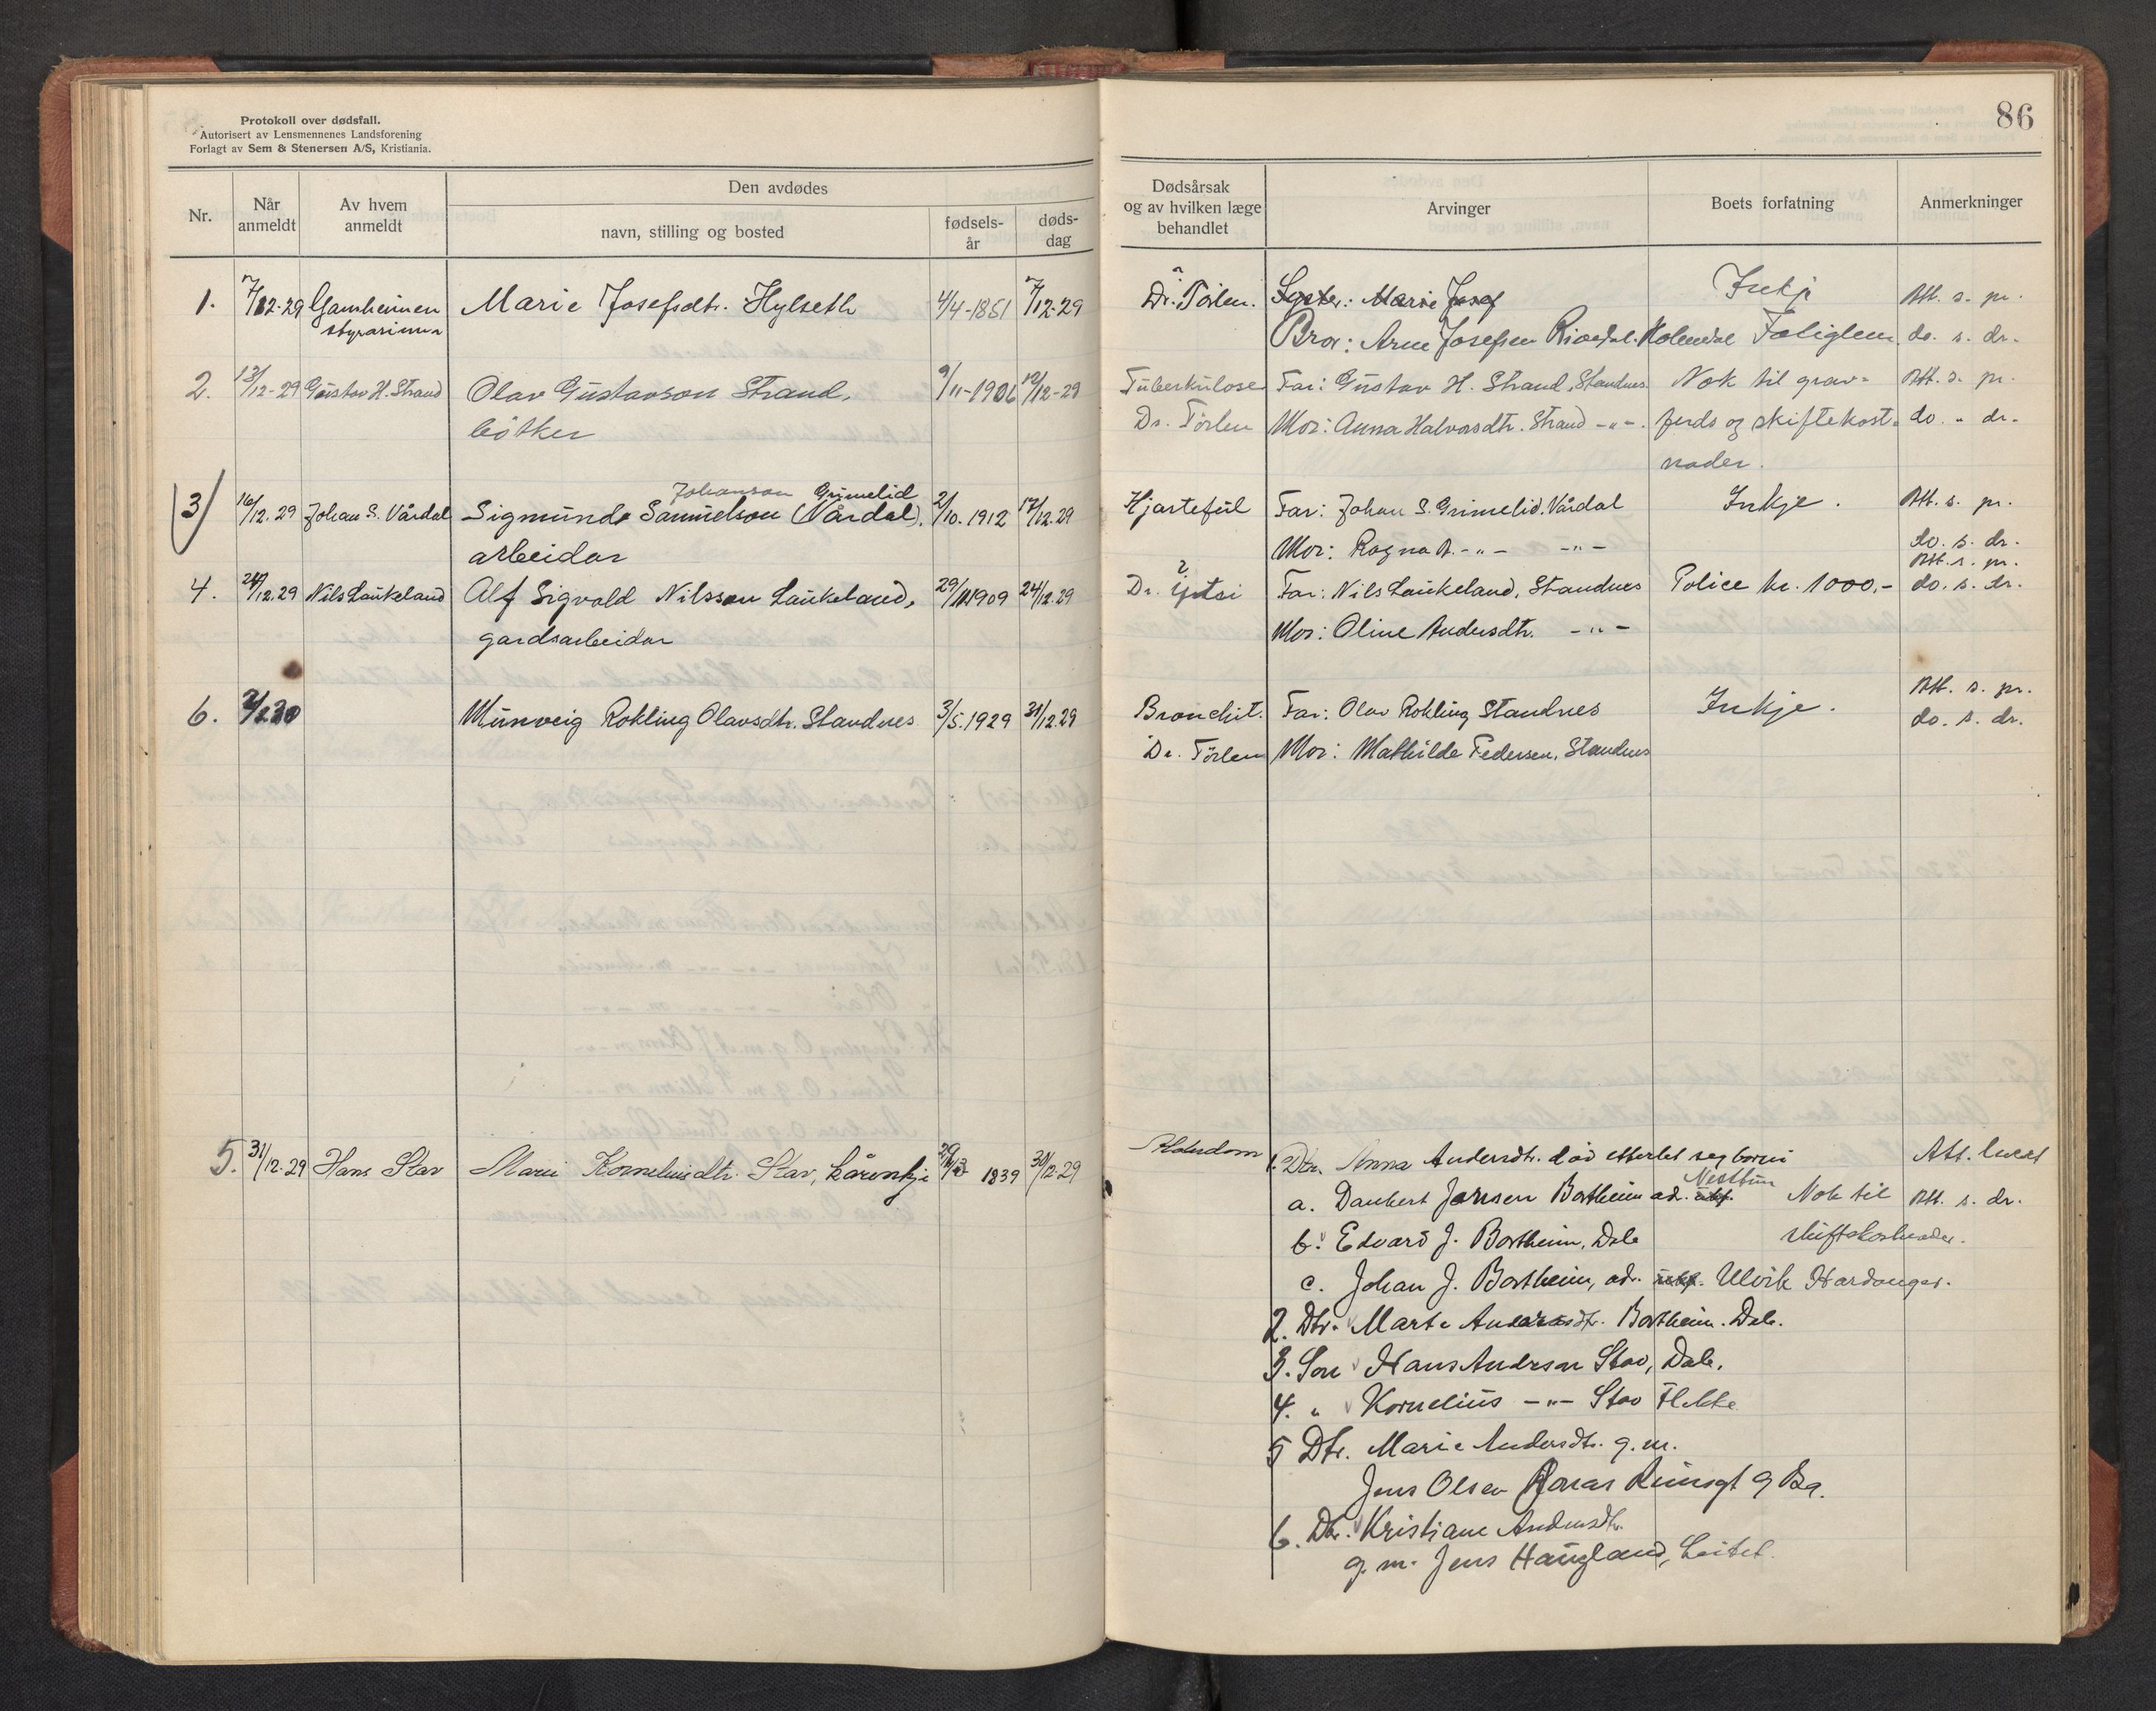 Protokoll over dødsfall.
Autorisert av Lensmennenes Landsforening
Forlagt av Sem & Stenersen A/S, Kristiania.
86
Nr.
Når anmeldt
Av hvem anmeldt
Den avdødes
navn, stilling og bosted
fødsels-år
døds-dag
Dødsårsak og av hvilken læge behandlet
Arvinger
Boets forfatning
Anmerkninger
1. 7/12-29 Gamheimen Marie Josefsdtr. Hylseth 4/4-1851 7/12-29 Dr. Tørlen. Syster: Marie Josef Inkje Att. s. pr.
styrarinna Bror: Arne Josefsen Holmedal Fatiglem do. s. dr.
2. 13/12-29 Gustav H. Strand Olav Gustavson Strand, 9/11-1906 12/12-29 Tuberkulose Far: Gustav H. Strand, Standnes Nok til grav- Att. s. pr.
bøtker Dr. Tørlen Mor: Anna Halvorsdtr. Strand -"-. ferds og skiftekost- do. " dr.
nader.
Johanson Grimelid
3 16/12.29 Johan S. Vårdal Sigmund Samuelson (Vårdal), 2/10.1912 12/12.29 Hjartefeil Far: Johan S. Grimelid, Vårdal Inkje. Att. s. pr.
arbeidar Mor: Ragna A. -"- -"- do. s. dr.
Att. s. pr.
4. 24/12.29 Nils Laukeland Alf Sigvald Nilsson Laukeland, 29/11 1909 24/12.29 Dr. Far: Nils Laukeland, Standnes Police kr. 1000,- do. s. dr.
gardsarbeidar Mor: Oline Andersdtr. -"-
Att. s. pr.
6. 2/1.30 Munveig Rokling Olavsdtr. Standnes 3/5.1929 31/12.29 Bronchit. Far: Olav Rokling Standnes Inkje. do. s. dr.
Dr. Tørlen Mor: Mathilde Pedersen, Standnes
5. 31/12-29 Hans Stav Marii Korneliusdtr. Stav, 1839 30/12-29 Alderdom 1. Dtr. Anna Andersdtr. død etterlet seg born: Att. luert
Nesttun
a. Daubert Jansen Bortheim ad. Nok til Att. s. dr.
b. Edvard J. Bortheim, Dale skiftekostnader.
c. Johan J. Bortheim, ad. Ulvik Hardanger.
2. Dtr. Marte Andersdtr. Bortheim. Dale.
3. Son Hans Anderson Stav, Dale.
4. " Kornelius -"- Stav Flekke
5 Dtr. Marie Andersdtr. g.m.
Jens Olsen
6. Dtr. Kristiane Andersdtr.
g.m. Jens Haugland, Leitet.